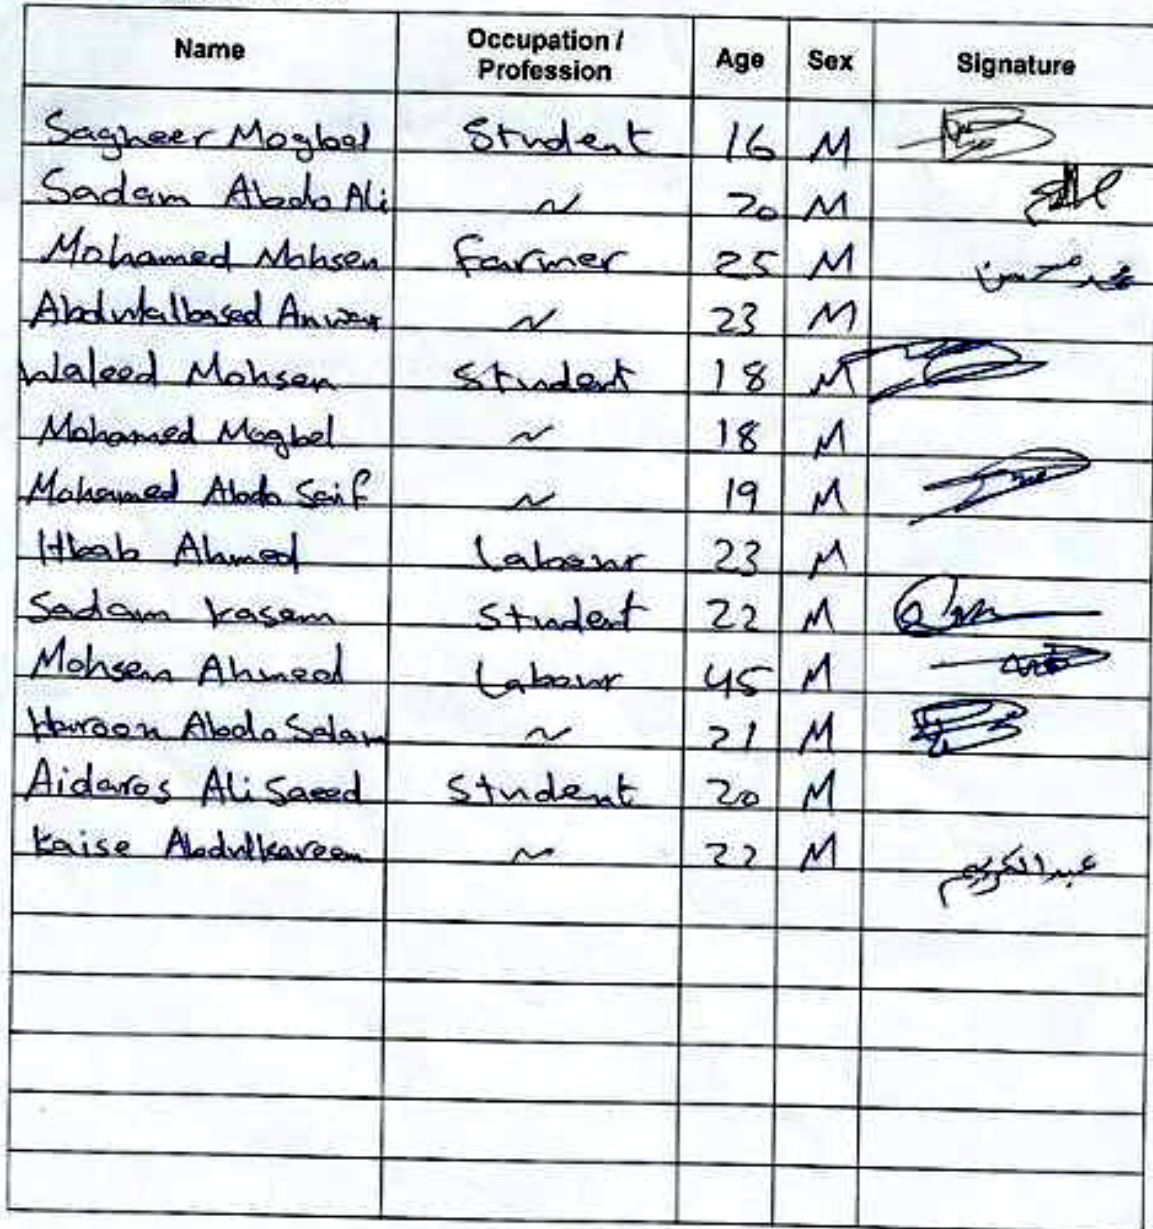 Name Occupation / Profession Age Sex Signature
Sagheer Mogbel Student 16 M
Sadam Abdo Ali ~ 20 M
Mohamed Mohsen Farmer 25 M محمد محسن
Anwar ~ 23 M
Waleed Mohsen Student 18 M
Mohamed Mogbel ~ 18 M
Mohamed Abdo Saif ~ 19 M
Ahmed Labour 23 M
Sadam Kasem Student 22 M
Mohsen Ahmed Labour 45 M
Haroon Abdo Salam ~ 21 M
Aidaros Ali Saeed Student 20 M
Kaise Abdulkareem ~ 22 M عبدالكريم